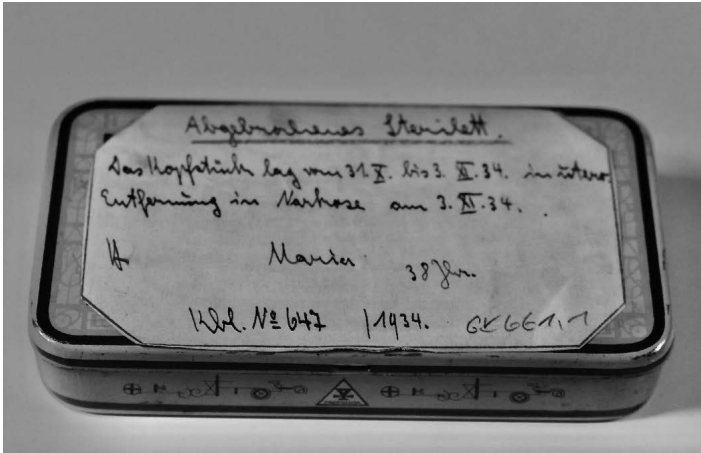 Abgebrochenes Sterilett.
Das Kopfstück lag vom 31.X. bis 3. XI. 34. in utero.
Entfernung in Narkose am 3. XI. 34.
Maria 38 Jhr.
Kbl. № 647 /1934. GK 661,1